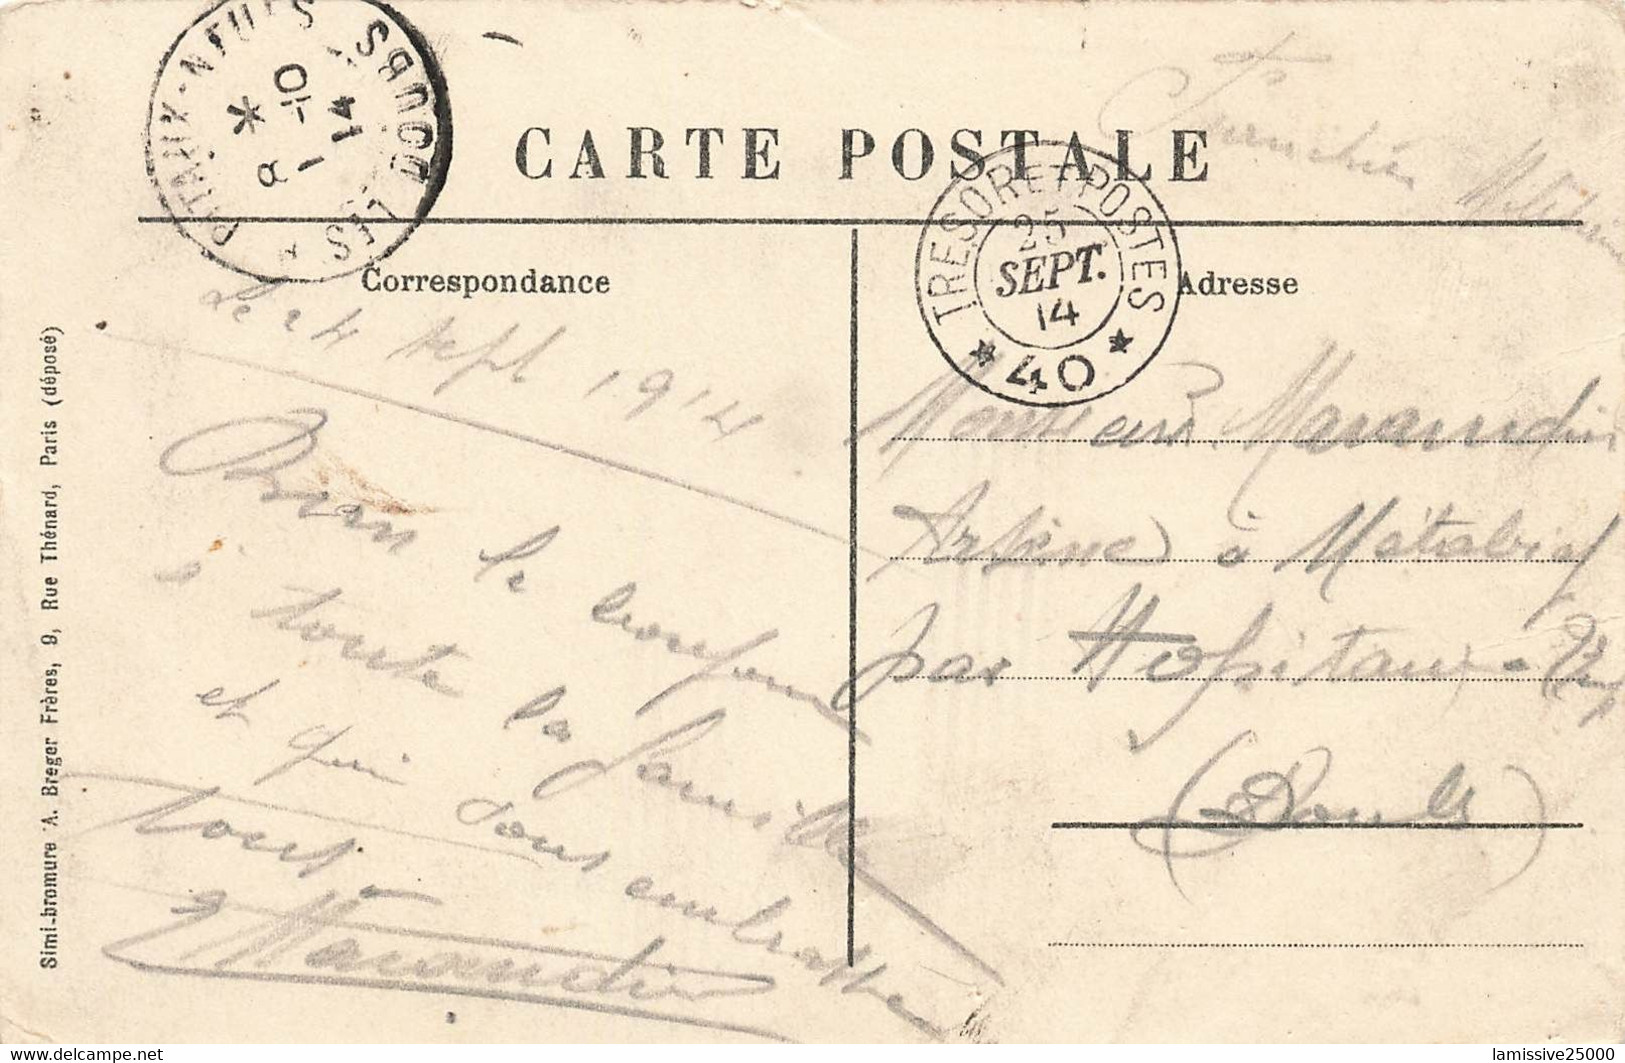 LES HOPITAUX-NEUFS
DOUBS
10-1
14
Franchise Militaire
CARTE POSTALE
TRESOR ET POSTES
25
SEPT.
14
* 40 *
Correspondance
Adresse
Le 24 Sept 1914
Bien le bonjour
à toute la famille
et qui vous embrasse
tout
Maraudin
Monsieur Maraudin
Arsène à Métabief
par Hopitaux-Neufs
(Doubs)
Simi-bromure A. Breger Frères, 9, Rue Thénard, Paris (déposé)
lamissive25000